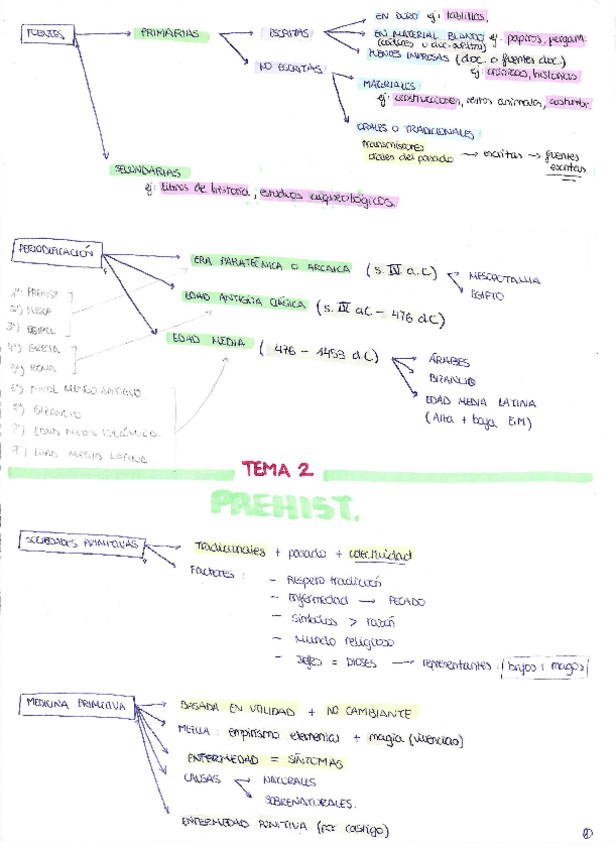 FUENTES
PRIMARIAS
ESCRITAS
EN DURO ej: tablillas,
EN MATERIAL BLANDO ej: papiros, pergam.
FUENTES IMPRESAS (doc. o fuentes doc.)
ej: crónicas, historias
NO ESCRITAS
MATERIALES
ej: construcciones, restos animales, costumbr.
ORALES O TRADICIONALES
transmisores
orales del pasado → escritas → fuentes
escritas
SECUNDARIAS
ej: libros de historia, estudios arqueológicos.
PERIODIFICACIÓN
ERA PARATÉCNICA O ARCAICA (s. IV a.C)
MESOPOTAMIA
EGIPTO
EDAD ANTIGUA CLÁSICA (s. IV a.C - 476 d.C)
EDAD MEDIA (476 - 1453 d.C)
ÁRABES
BIZANCIO
EDAD MEDIA LATINA
(Alta + baja E.M)
1º) PREHIST
2º) MESOP
3º) EGIPTO
4º) GRECIA
5º) ROMA
6º) FINAL MUNDO ANTIGUO
7º) BIZANCIO
8º) EDAD MEDIA ISLÁMICA
9º) EDAD MEDIA LATINA
TEMA 2
PREHIST.
SOCIEDADES PRIMITIVAS
Tradicionales + pasado + colectividad
Factores:
- Respeto tradición
- Enfermedad → PECADO
- Símbolos > razón
- Mundo religioso
- Jefes = DIOSES → representantes: brujos y magos
MEDICINA PRIMITIVA
BASADA EN UTILIDAD + NO CAMBIANTE
MEZCLA: empirismo elemental + magia (vivencias)
ENFERMEDAD = SÍNTOMAS
CAUSAS
NATURALES
SOBRENATURALES.
ENFERMEDAD PUNITIVA (por castigo)